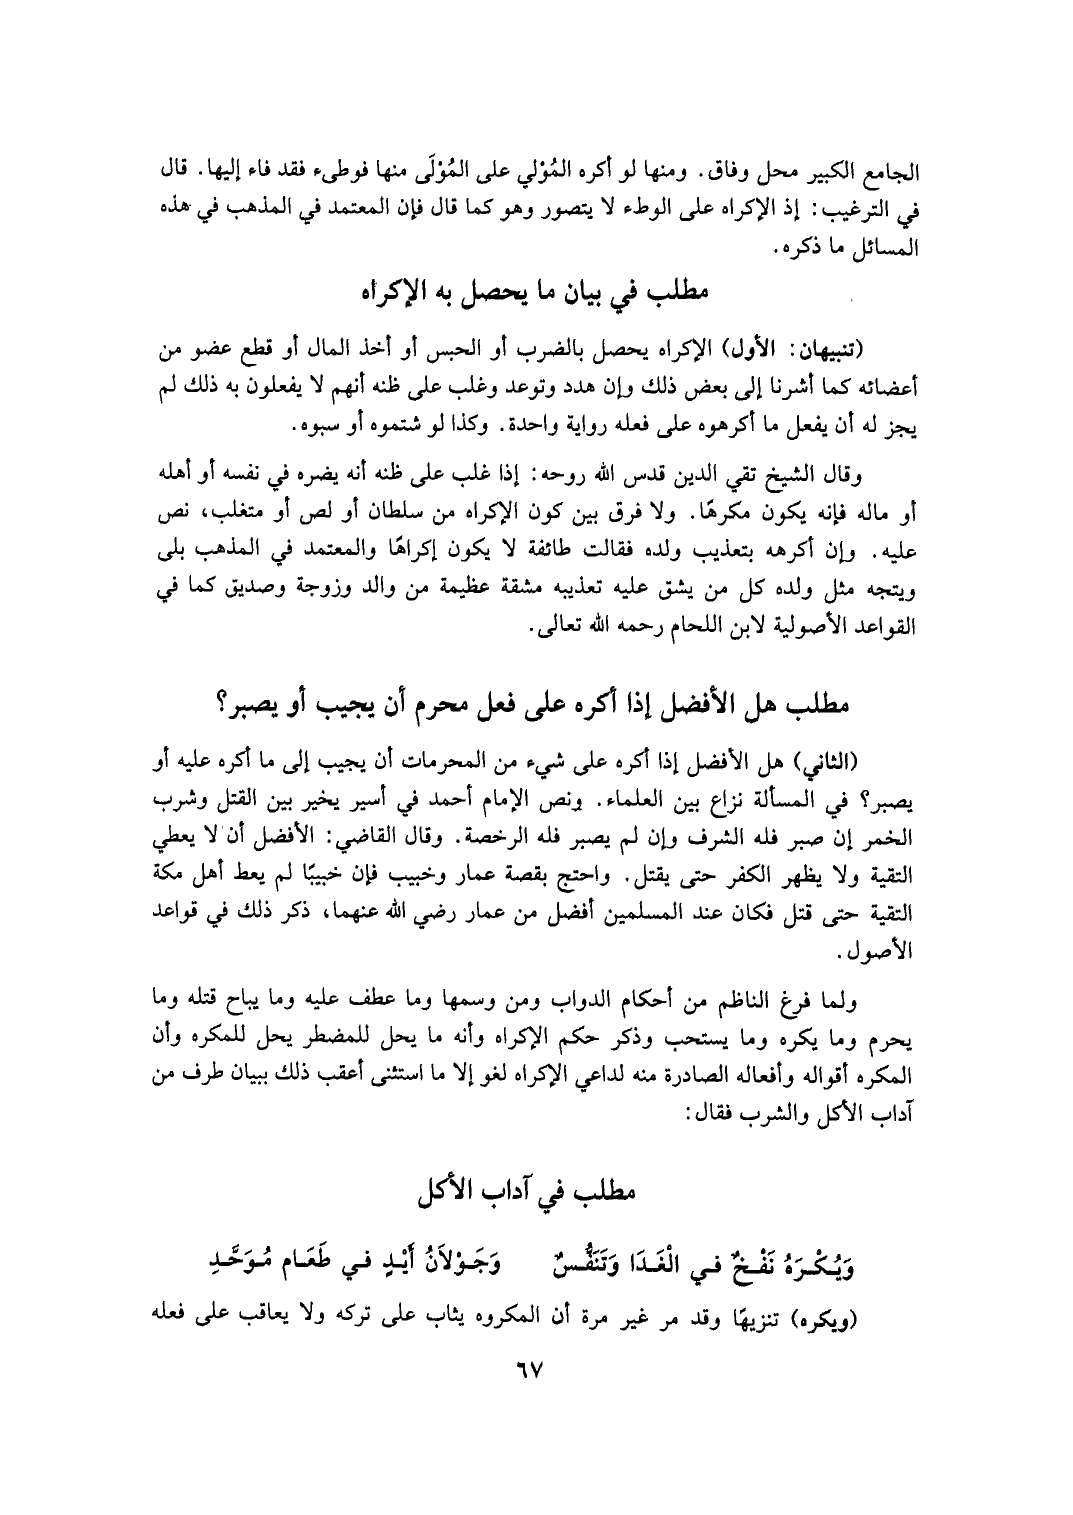 الجامع الكبير محل وفاق. ومنها لو أكره المُوْلي على المُوْلَى منها فوطىء فقد فاء إليها. قال
في الترغيب: إذ الإكراه على الوطء لا يتصور وهو كما قال فإن المعتمد في المذهب في هذه
المسائل ما ذكره.
مطلب في بيان ما يحصل به الإكراه
(تنبيهان: الأول) الإكراه يحصل بالضرب أو الحبس أو أخذ المال أو قطع عضو من
أعضائه كما أشرنا إلى بعض ذلك وإن هدد وتوعد وغلب على ظنه أنهم لا يفعلون به ذلك لم
يجز له أن يفعل ما أكرهوه على فعله رواية واحدة. وكذا لو شتموه أو سبوه.
وقال الشيخ تقي الدين قدس الله روحه: إذا غلب على ظنه أنه يضره في نفسه أو أهله
أو ماله فإنه يكون مكرهًا. ولا فرق بين كون الإكراه من سلطان أو لص أو متغلب، نص
عليه. وإن أكرهه بتعذيب ولده فقالت طائفة لا يكون إكراهًا والمعتمد في المذهب بلى
ويتجه مثل ولده كل من يشق عليه تعذيبه مشقة عظيمة من والد وزوجة وصديق كما في
القواعد الأصولية لابن اللحام رحمه الله تعالى.
مطلب هل الأفضل إذا أكره على فعل محرم أن يجيب أو يصبر؟
(الثاني) هل الأفضل إذا أكره على شيء من المحرمات أن يجيب إلى ما أكره عليه أو
يصبر؟ في المسألة نزاع بين العلماء. ونص الإمام أحمد في أسير يخير بين القتل وشرب
الخمر إن صبر فله الشرف وإن لم يصبر فله الرخصة. وقال القاضي: الأفضل أن لا يعطي
التقية ولا يظهر الكفر حتى يقتل. واحتج بقصة عمار وخبيب فإن خبيبًا لم يعط أهل مكة
التقية حتى قتل فكان عند المسلمين أفضل من عمار رضي الله عنهما، ذكر ذلك في قواعد
الأصول.
ولما فرغ الناظم من أحكام الدواب ومن وسمها وما عطف عليه وما يباح قتله وما
يحرم وما يكره وما يستحب وذكر حكم الإكراه وأنه ما يحل للمضطر يحل للمكره وأن
المكره أقواله وأفعاله الصادرة منه لداعي الإكراه لغو إلا ما استثنى أعقب ذلك ببيان طرف من
آداب الأكل والشرب فقال:
مطلب في آداب الأكل
وَيُكْرَهُ نَفْخٌ في الْغَدَا وَتَنَفُّسٌ وَجَوْلاَنُ أَيْدٍ في طَعَام مُوَحَّدِ
(ويكره) تنزيهًا وقد مر غير مرة أن المكروه يثاب على تركه ولا يعاقب على فعله
٦٧